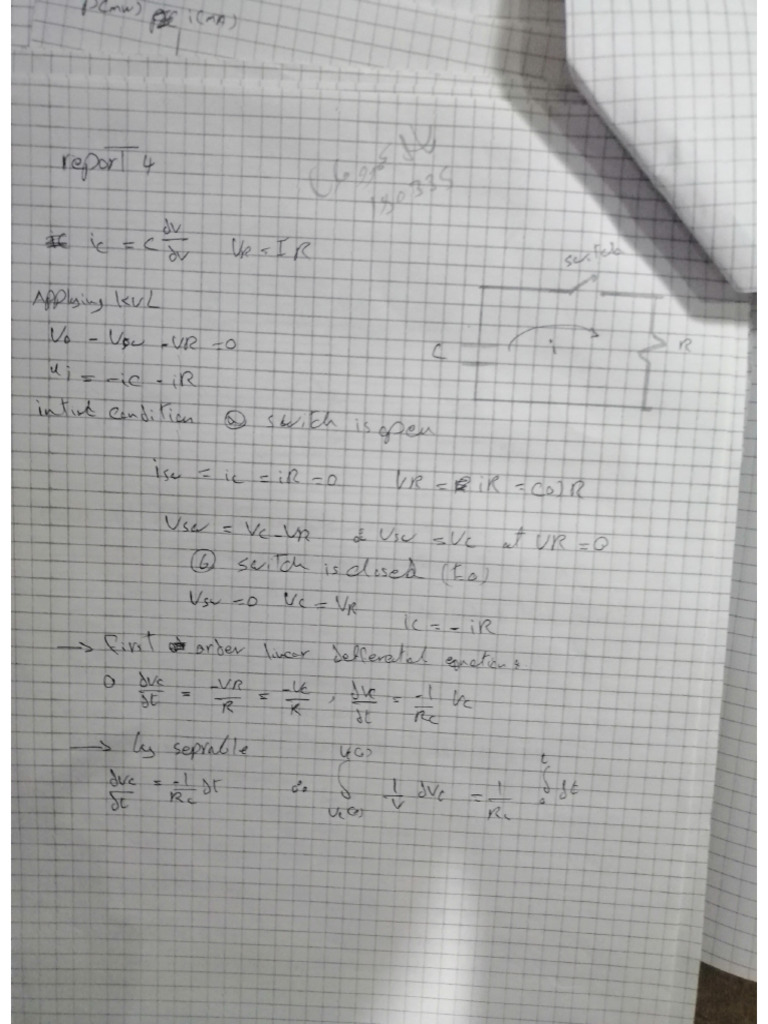 P(mw) i(mA)
report 4
ic = C dv/dv VR = IR
switch
Applying KVL
V0 - Vsw - VR = 0
C i R
= -ic - iR
condition @ switch is open
isw = ic = iR = 0 VR = iR = (0)R
Vsw = Vc - VR & Vsw = Vc at VR = 0
(b) switch is closed (t.0)
Vsw = 0 Vc = VR
ic = - iR
→ first order linear defferetal equations
dvc/dt = -VR/R = -Vc/R , dvc/dt = -1/Rc Vc
→ by seprable
dvc/dt = -1/Rc dt ∴ ∫ 1/V dvc = -1/Rc ∫ dt